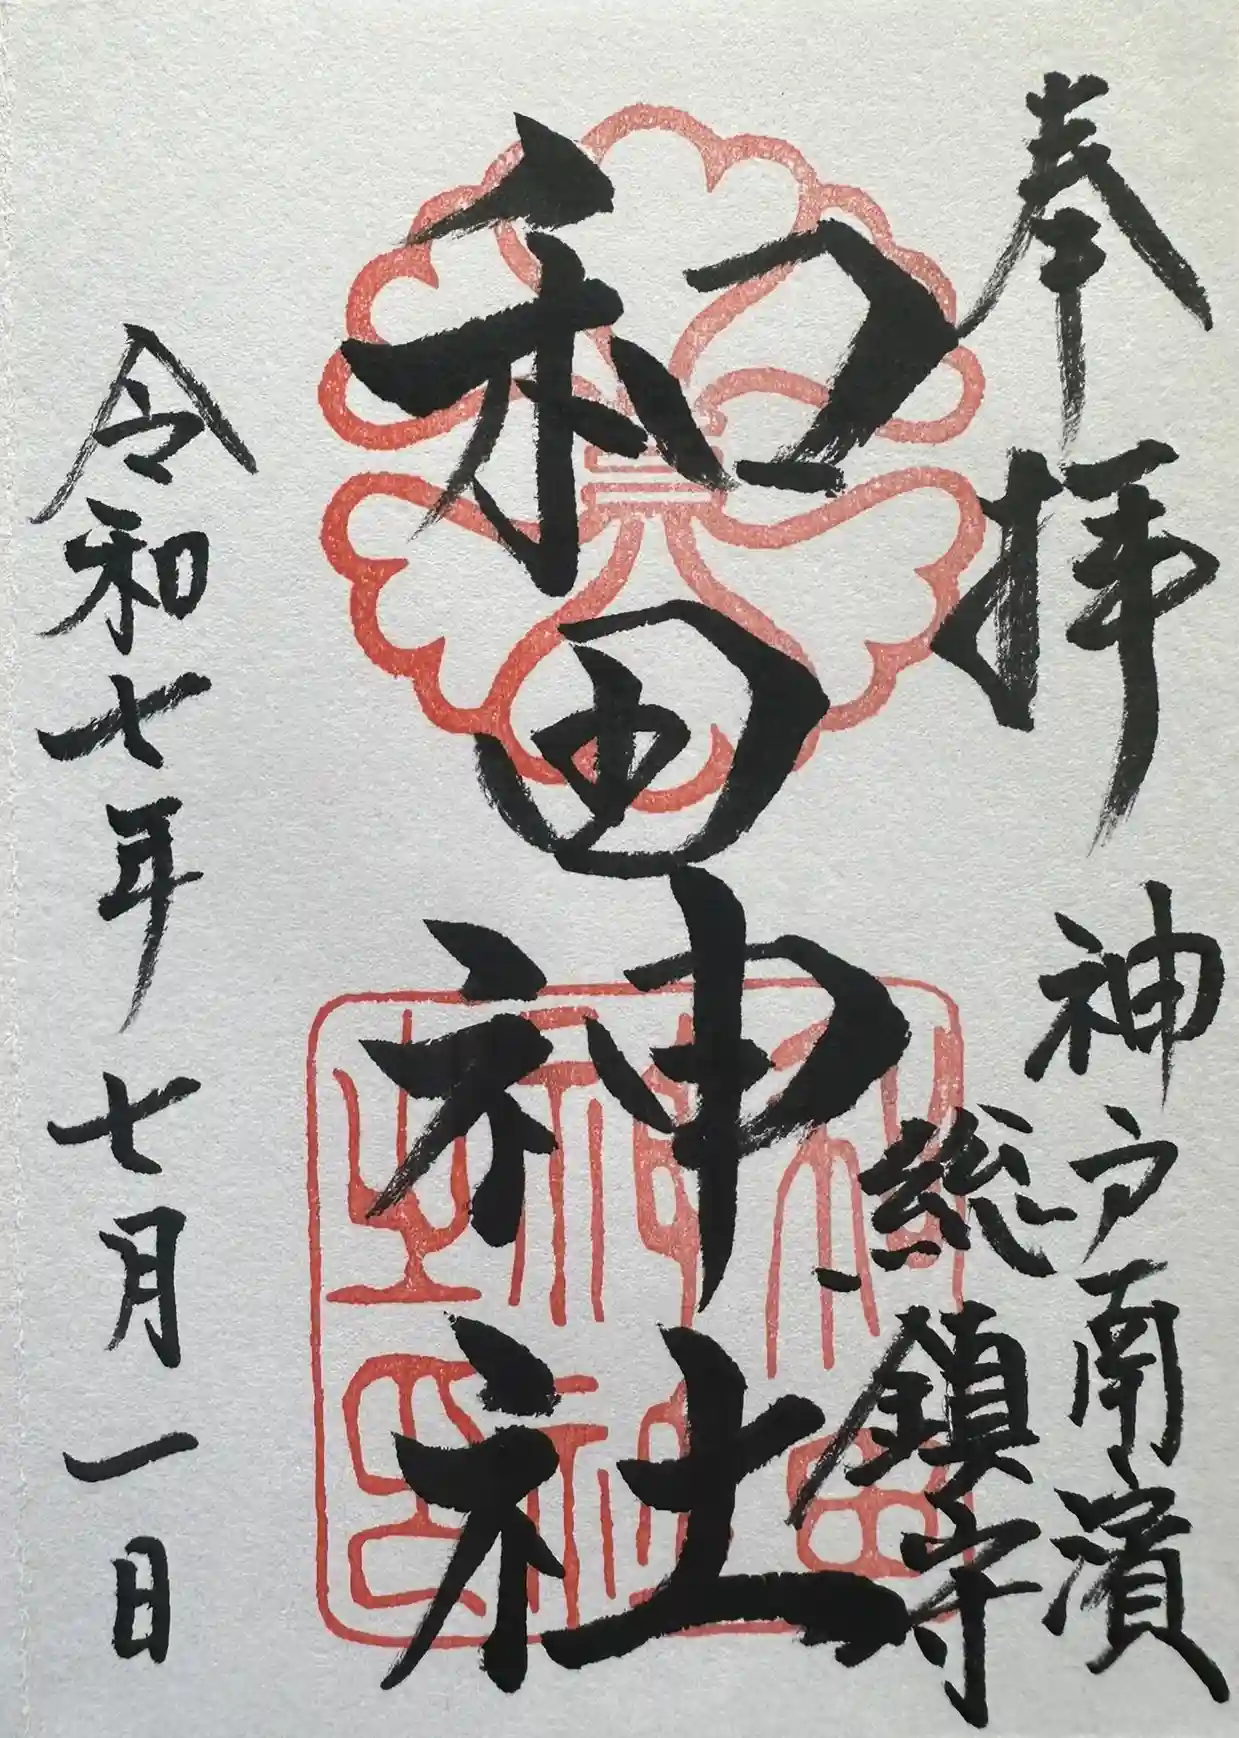 奉拝
神戸南濱
総鎮守
和田神社
和田神社之印
令和七年 七月一日